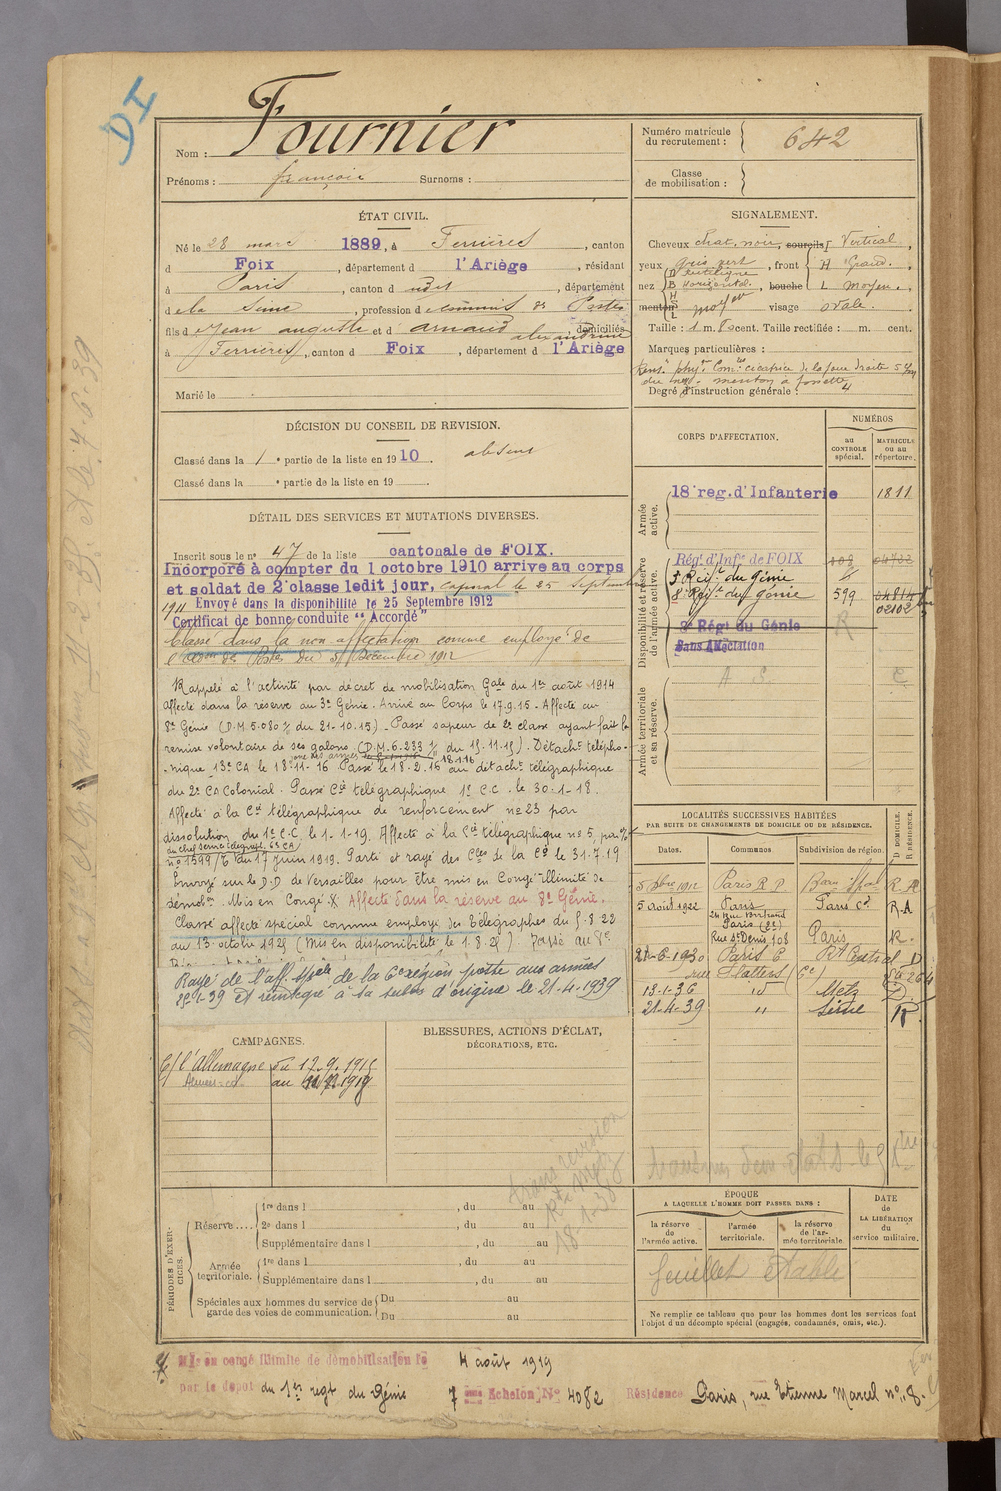 DI
Nom : Fournier
Prénoms : françois Surnoms :
Numéro matricule du recrutement : 642
Classe de mobilisation :
ÉTAT CIVIL.
Né le 28 mars 1889, à Ferrières, canton
d Foix, département d l'Ariège, résidant
à Paris, canton d udit, département
de la Seine, profession de commis des Postes
fils de Jean auguste et d' arnaud alexandrine, domiciliés
à Ferrières, canton d Foix, département d l'Ariège
Marié le
SIGNALEMENT.
Cheveux chat. noir, sourcils Vertical,
yeux gris vert, front H Grand.,
nez D Rectiligne B Horizontal. H L, bouche L moyen.,
menton moyen visage ovale.
Taille : 1 m. 80 cent. Taille rectifiée : m. cent.
Marques particulières :
Rens.ts phy. Com.res cicatrice de la joue droite
menton à fossette
Degré d'instruction générale : 4
DÉCISION DU CONSEIL DE REVISION.
Classé dans la 1e partie de la liste en 1910. absent
Classé dans la e partie de la liste en 19 .
DÉTAIL DES SERVICES ET MUTATIONS DIVERSES.
Inscrit sous le no 47 de la liste cantonale de FOIX.
Incorporé à compter du 1 octobre 1910 arrive au corps
et soldat de 2e classe ledit jour, caporal le 25 Septembre
1911 Envoyé dans la disponibilité le 25 Septembre 1912
Certificat de bonne conduite "Accordé"
Classé dans la non affectation comme employé de
l'adon des Postes du 5 Décembre 1912
Rappelé à l'activité par décret de mobilisation Gale du 1er août 1914
affecté dans la réserve au 3e Génie. Arrivé au Corps le 17.9.15. Affecté au
8e Génie (D.M. 5.080 % du 21-10.15). Passé sapeur de 2e classe ayant fait la
remise volontaire de ses galons (D.M. 6.233 % du 15.11.15). Détacht télépho-
nique 13e CA le 18-11-16 Passé le 18-2-16 au détacht télégraphique
du 2e CA Colonial. Passé Cie télégraphique 1er C.C. le 30-1-18.
Affecté à la Cie télégraphique de renforcement no 23 par
dissolution du 1er C.C. le 1-1-19. Affecté à la Cie télégraphique no 5, par %
du chef service télégraph. 6e CA
no 1599/T du 17 juin 1919. Parti et rayé des Cles de la Cie le 31.7.19
Envoyé sur le D.D. de Versailles pour être mis en Congé illimité de
démobon. Mis en Congé X Affecté dans la réserve au 8e Génie.
Classé affecté spécial comme employé des télégraphes du 5.8.22
au 13 octobre 1925 (Mis en disponibilité le 1.8.25) Passé au 8e
Rayé de l'aff. spéale de la 6e région poste aux armées
25-1-39 et réintégré à sa subdon d'origine le 21-4-1939
CORPS D'AFFECTATION.
NUMÉROS
au CONTROLE spécial.
MATRICULE OU AU répertoire.
Armée active.
18e reg. d'Infanterie 1811
Disponibilité et réserve de l'armée active.
Régt d'Infie de FOIX 108
5 Régt du Génie
8e Régt du génie 599 02102
8e Régt du Génie
Sans Affectation
Armée territoriale et sa réserve.
A S.
LOCALITÉS SUCCESSIVES HABITÉES
PAR SUITE DE CHANGEMENTS DE DOMICILE OU DE RÉSIDENCE.
Dates. Communes. Subdivision de région. D DOMICILE. R RÉSIDENCE.
5 Xbre 1912 Paris R P R.
5 août 1922 Paris Paris Cal R.A
24 Rue Bertrand
Paris (2e)
Rue St Denis 108 Paris R.
21-6-1930 Paris C Rt Central D
rue
13-1-36 id Metz D
21-4-39 " Seine R.
CAMPAGNES.
C/ l'Allemagne du 17.9.1915
au 1919
BLESSURES, ACTIONS D'ÉCLAT,
DÉCORATIONS, ETC.
18-1-38
PÉRIODES D'EXERCICES.
Réserve....
1re dans l , du au
2e dans l , du au
Supplémentaire dans l , du au
Armée territoriale.
1re dans l , du au
Supplémentaire dans l , du au
Spéciales aux hommes du service de garde des voies de communication. Du au
Du au
ÉPOQUE
A LAQUELLE L'HOMME DOIT PASSER DANS :
la réserve de l'armée active.
l'armée territoriale.
la réserve de l'armée territoriale
DATE de LA LIBÉRATION du service militaire.
feuillet établi
Ne remplir ce tableau que pour les hommes dont les services font
l'objet d'un décompte spécial (engagés, condamnés, omis, etc.).
X Mis en congé illimité de démobilisation le 4 août 1919
par le dépot du 1er regt du Génie 7 eme Echelon No 4082 Résidence Paris, rue Etienne Marcel no 8.